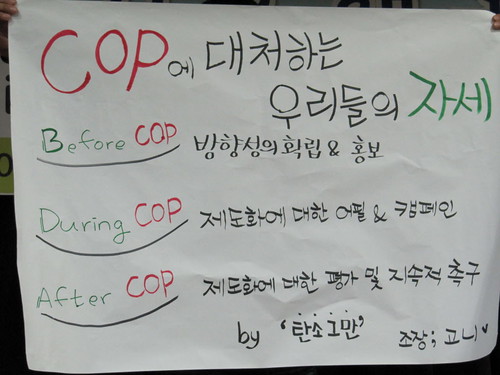 COP에 대처하는
우리들의 자세
Before COP 방향성의 확립 & 홍보
During COP 제도화에 대한 어필 & 캠페인
After COP 제도화에 대한 평가 및 지속적 촉구
by '탄소그만' 조장; 고니♥